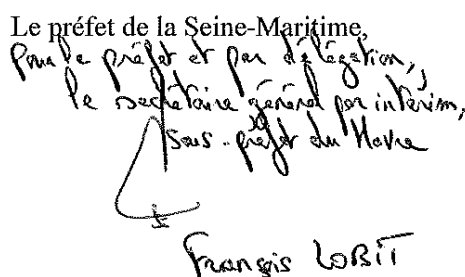 Le préfet de la Seine-Maritime,
Pour le préfet et par délégation,
le secrétaire général par intérim,
sous-préfet du Havre
François LOBIT